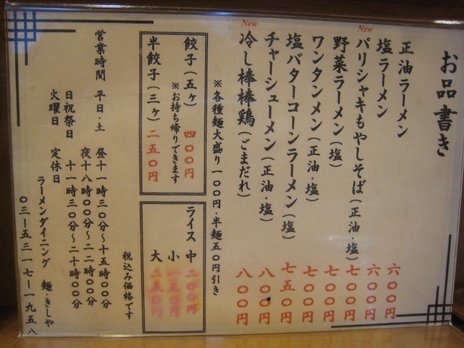 お品書き
正油ラーメン 六〇〇円
塩ラーメン 六〇〇円
New
パリシャキもやしそば(正油・塩) 七〇〇円
野菜ラーメン(塩) 七〇〇円
ワンタンメン(正油・塩) 七〇〇円
塩バターコーンラーメン(塩) 七五〇円
チャーシューメン(正油・塩) 八〇〇円
New
冷し棒棒鶏(ごまだれ) 八〇〇円
※各種麺大盛り一〇〇円・半麺五〇円引き
餃子(五ヶ) 四〇〇円
※お持ち帰りできます
半餃子(三ヶ) 二五〇円
ライス 中 二〇〇円
小 一五〇円
大 二五〇円
税込み価格です
営業時間 平日・土 昼十一時三〇分~十五時〇〇分
夜十八時〇〇分~二二時〇〇分
日祝祭日 十一時三〇分~二十時〇〇分
火曜日 定休日
ラーメンダイニング 麺・きしや
〇三-五三一七-一九五八